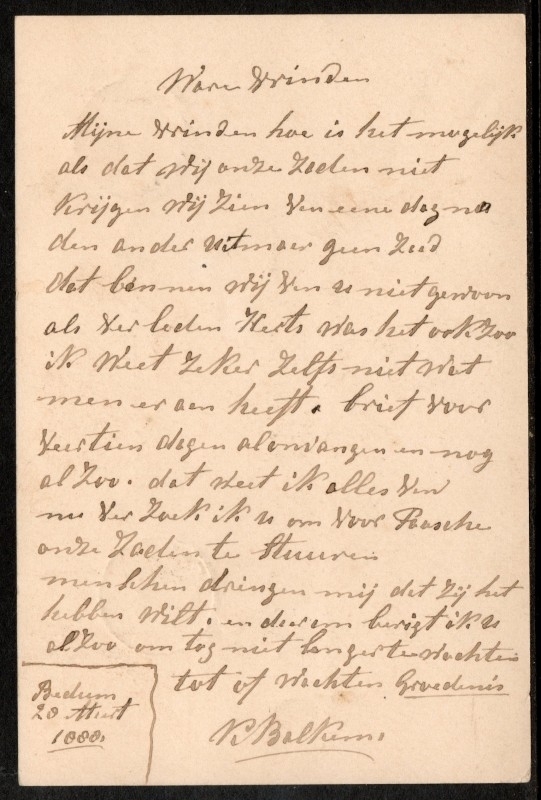 Ware Vrinden
Mijne Vrinden hoe is het mogelijk
als dat wij onze Zaden niet
Krijgen wij Zien Van eene dag na
den ander uit maer geen Zad
dat bennen wij Van u niet gewoon
als Verleden Herts was het ook Zoo
ik weet Zeker Zelfs niet wat
men er aen heeft. brief Voor
Veertien dagen al onvangen en nog
al Zoo. dat weet ik alles Van
nu Ver Zoek ik u om Voor Paasche
onze Zaden te stuuren
menschen dringen mij dat Zij het
hebben wilt. en daerom berigt ik u
al Zoo om tog niet langer te wachten
tot of wachten Groedenis
Bedum
28 Mert
1888.
Balkema